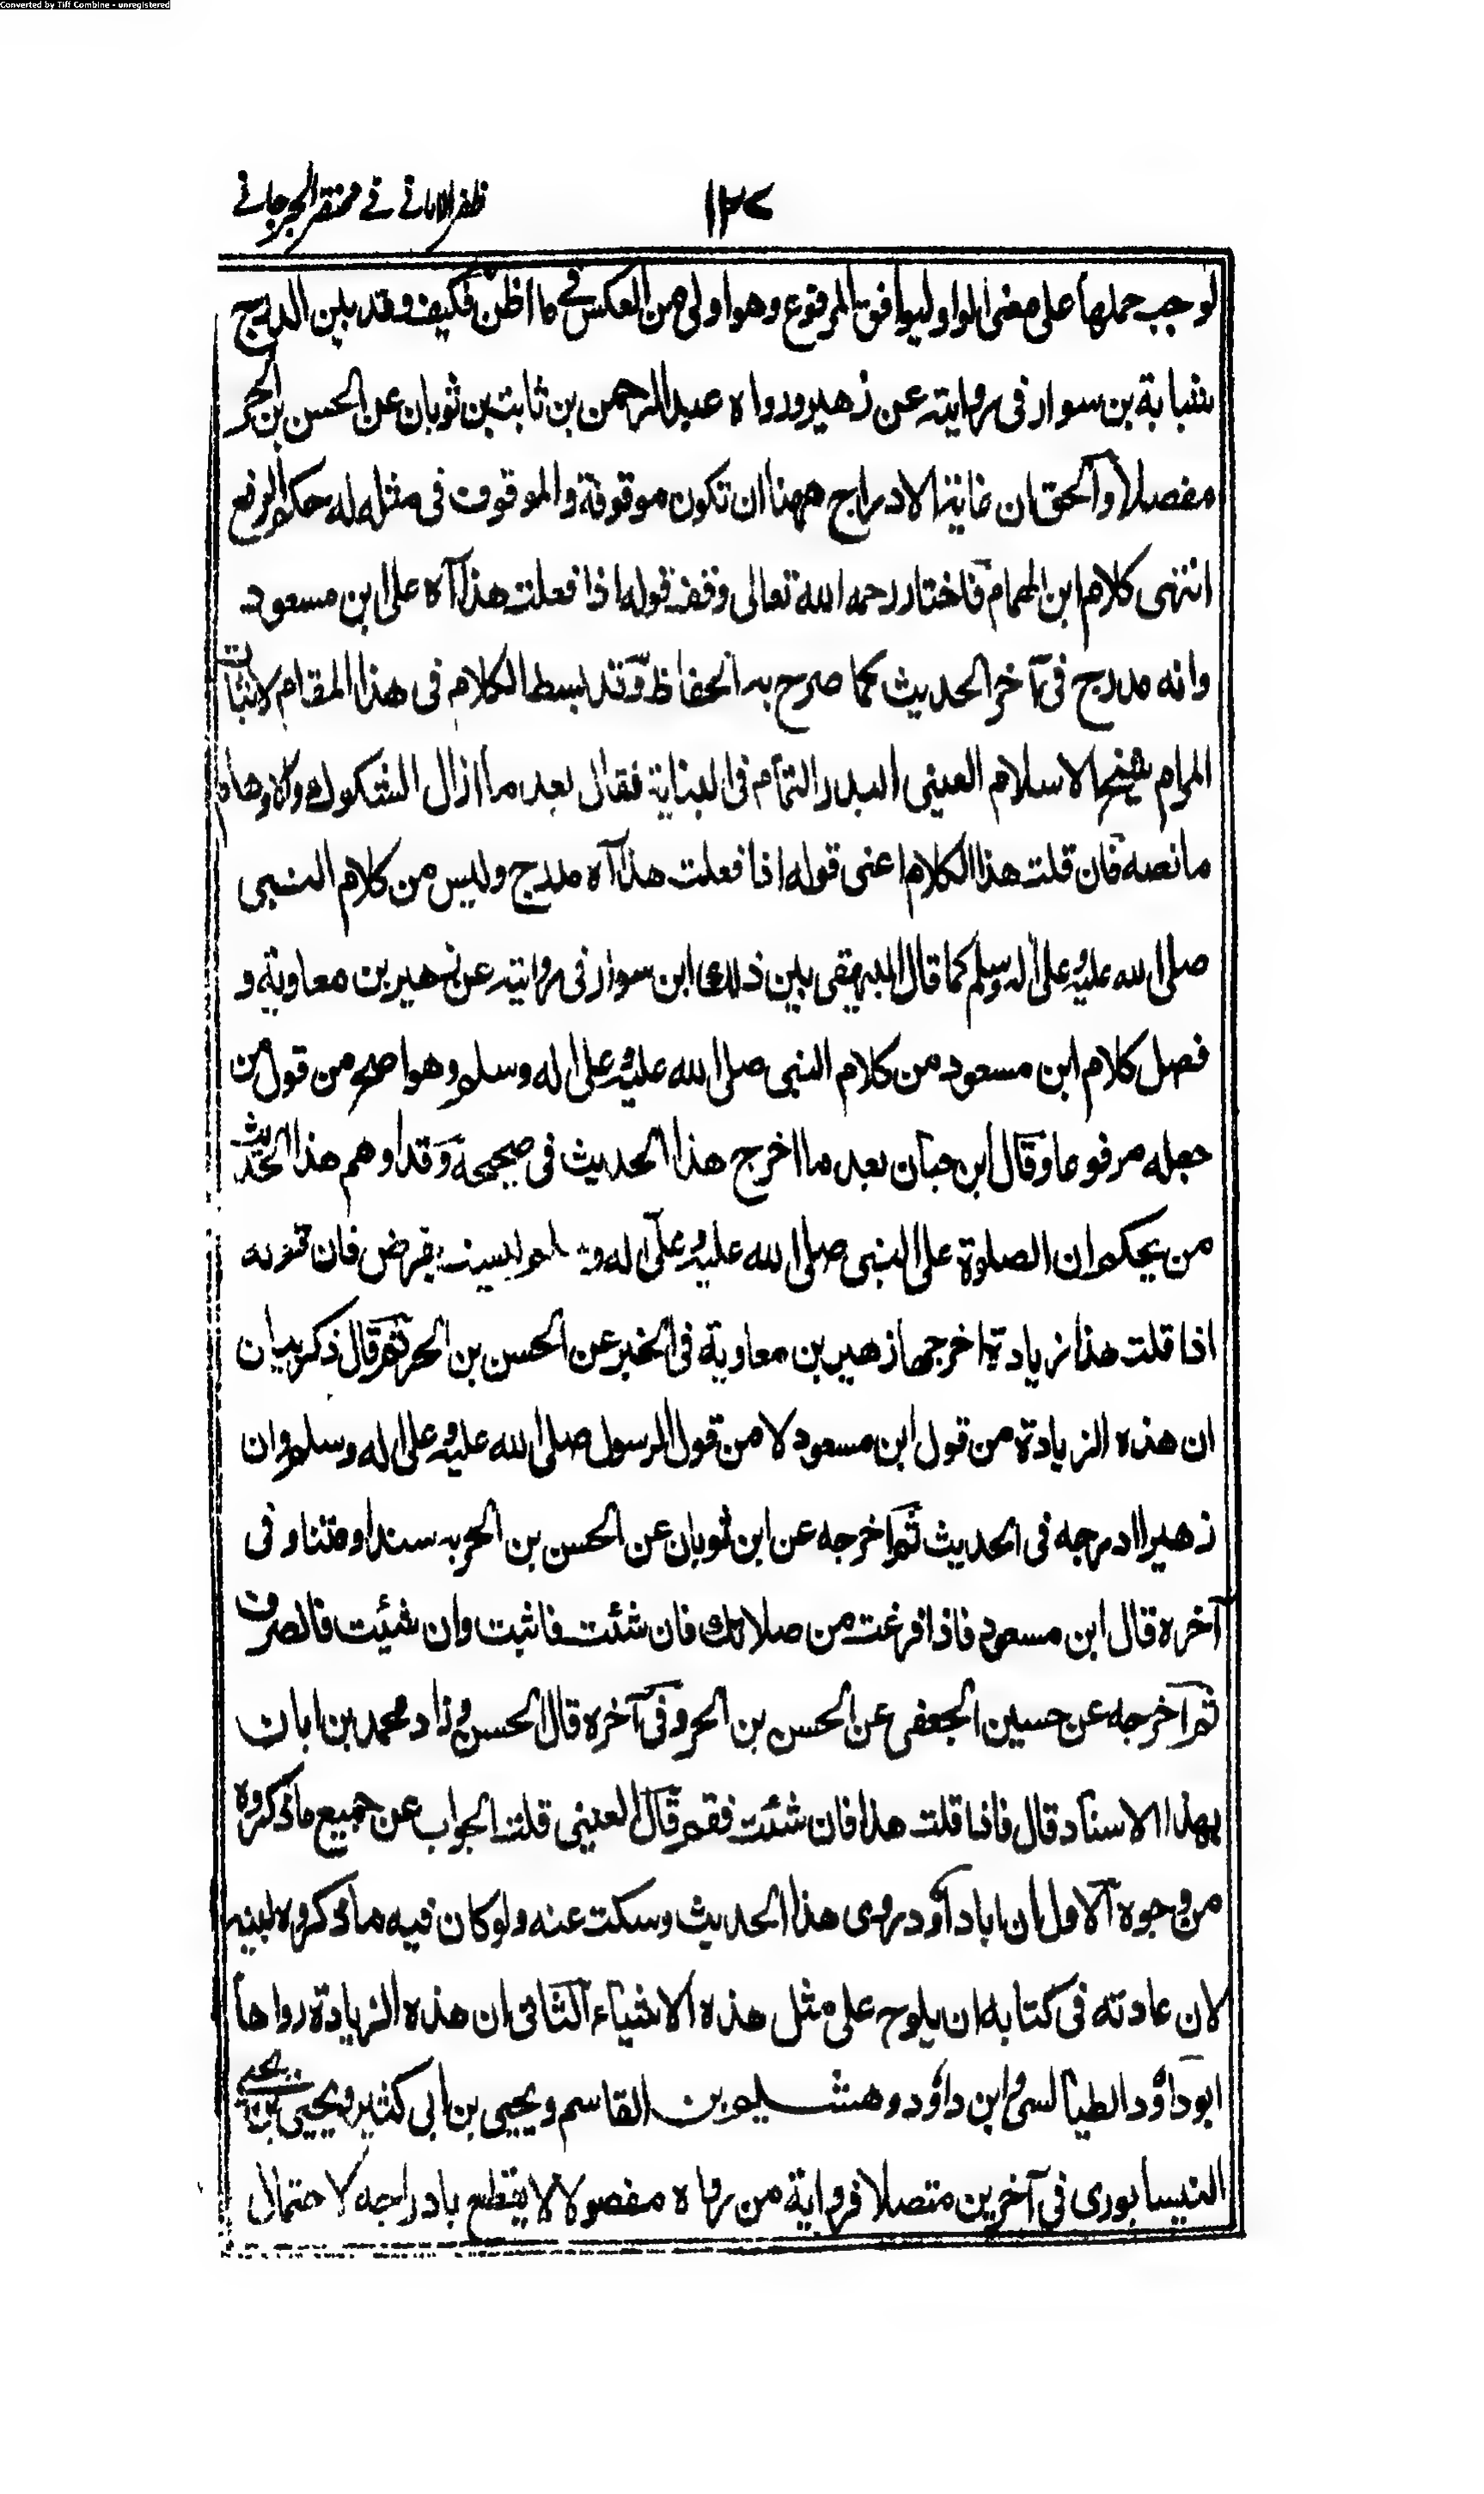 Converted by Tiff Combine - unregistered
١٢٧ ظفر الامانى فے مختصر الجرجانے
لوجب حملها على معنى الواو ليوافق المرفوع وهو اولى من العكس فى ما اظن فكيف وقد بين المدرج
شبابة بن سوار فى روايته عن زهير ورواه عبد الرحمن بن ثابت بن ثوبان عن الحسن بن الحر
مفصلا والحق ان غاية الادراج ههنا ان تكون موقوفة والموقوف فى مثله له حكم الرفع
انتهى كلام ابن الهمام فاختار رحمه الله تعالى وقف قوله اذا فعلت هذا آه على ابن مسعود
وانه مدرج فى آخر الحديث كما صرح به الحفاظ وقد بسط الكلام فى هذا المقام لاثبات
المرام شيخ الاسلام العينى البدر التمام فى البناية فقال بعد ما ازال الشكوك والاوهام
ما نصه فان قلت هذا الكلام اعنى قوله اذا فعلت هذا آه مدرج وليس من كلام النبى
صلى الله عليه وعلى اله وسلم كما قال البيهقى بين ذلك ابن سوار فى روايته عن زهير بن معاوية و
فصل كلام ابن مسعود من كلام النبى صلى الله عليه وعلى اله وسلم وهو اصح من قول من
جعله مرفوعا وقال ابن حبان بعد ما اخرج هذا الحديث فى صحيحه وقد اوهم هذا الحديث
من يحكم ان الصلوة على النبى صلى الله عليه وعلى اله وسلم ليست بفرض فان قوله
اذا قلت هذا زيادة اخرجها زهير بن معاوية فى الخبر عن الحسن بن الحر ثم قال ذكر بيان
ان هذه الزيادة من قول ابن مسعود لا من قول الرسول صلى الله عليه وعلى اله وسلم وان
زهيرا ادرجه فى الحديث ثم اخرجه عن ابن ثوبان عن الحسن بن الحر به سندا ومتنا وفى
آخره قال ابن مسعود فاذا فرغت من صلاتك فان شئت فاثبت وان شئت فانصرف
ثم اخرجه عن حسين الجعفى عن الحسن بن الحر وفى آخره قال الحسن وزاد محمد بن ابان
بهذا الاسناد قال فاذا قلت هذا فان شئت فقم قال العينى قلت الجواب عن جميع ما ذكروه
من وجوه الاول ان ابا داؤد روى هذا الحديث وسكت عنه ولو كان فيه ما ذكروه لبينه
لان عادته فى كتابه ان يلوح على مثل هذه الاشياء الثانى ان هذه الزيادة رواها
ابو داؤد الطيالسى وابن داؤد وهشيم بن القاسم ويحيى بن ابى كثير ويحيى بن يحيى
النيسابورى فى آخرين متصلا فرواية من رواه مفصولا لا يقطع بادراجه لاحتمال